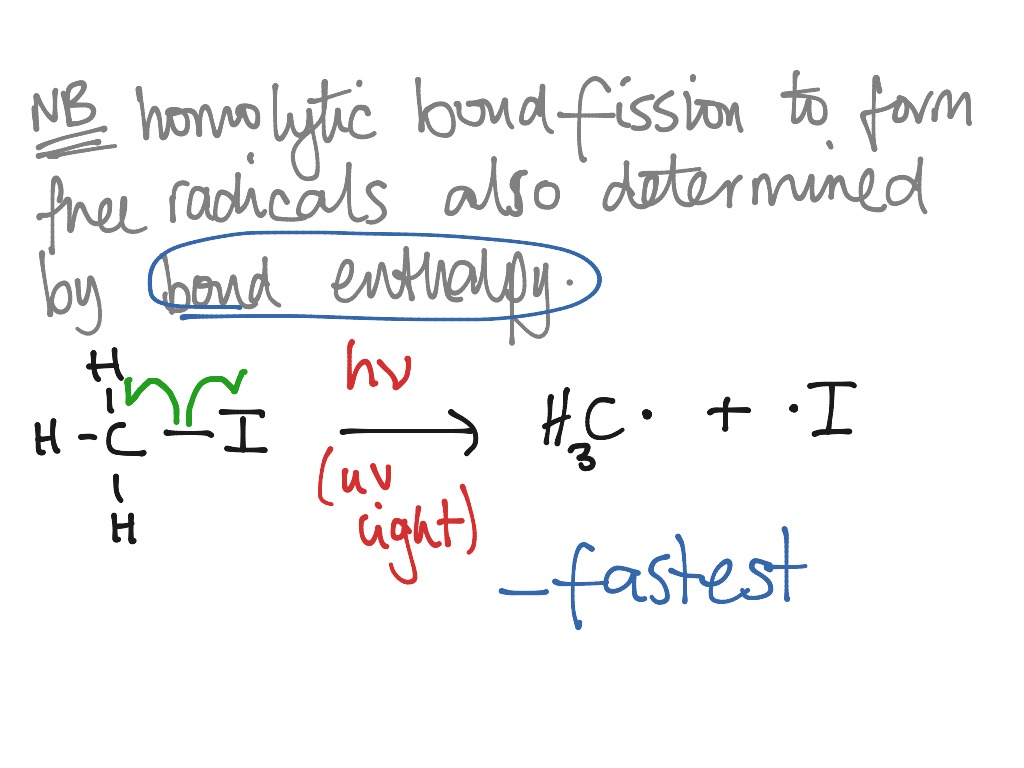 NB homolytic bond fission to form
free radicals also determined
by bond enthalpy.
H
hν
H - C — I → H3C· + ·I
(uv
light)
H
- fastest